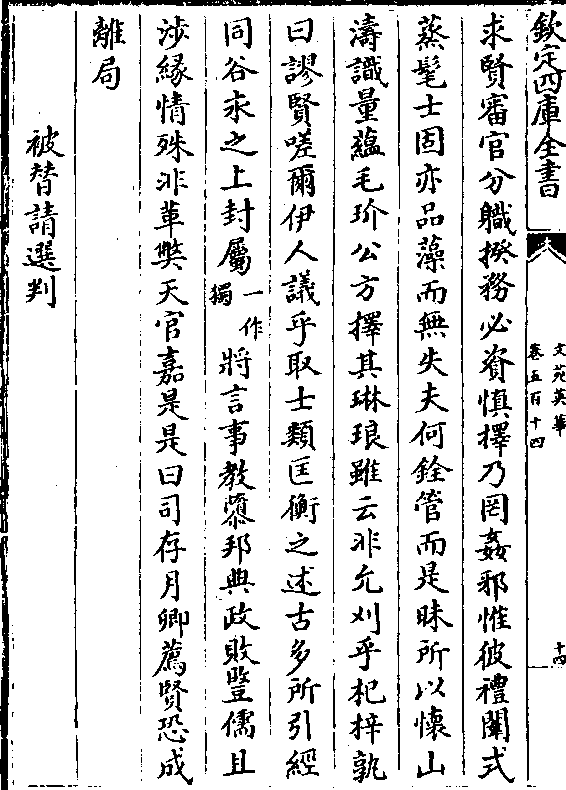 欽定四庫全書
文苑英華
卷五百十四
十四
求賢審官分職揆務必資慎擇乃罔姦邪惟彼禮闈式
蒸髦士固亦品藻而無失夫何銓管而是昧所以懷山
濤識量蘊毛玠公方擇其琳琅雖云非允刈乎杞梓孰
曰謬賢嗟爾伊人議乎取士類匡衡之述古多所引經
同谷永之上封屬一作獨將言事教藂邦典政敗豎儒且
涉緣情殊非革弊天官嘉是是曰司存月卿薦賢恐成
離局
被替請選判